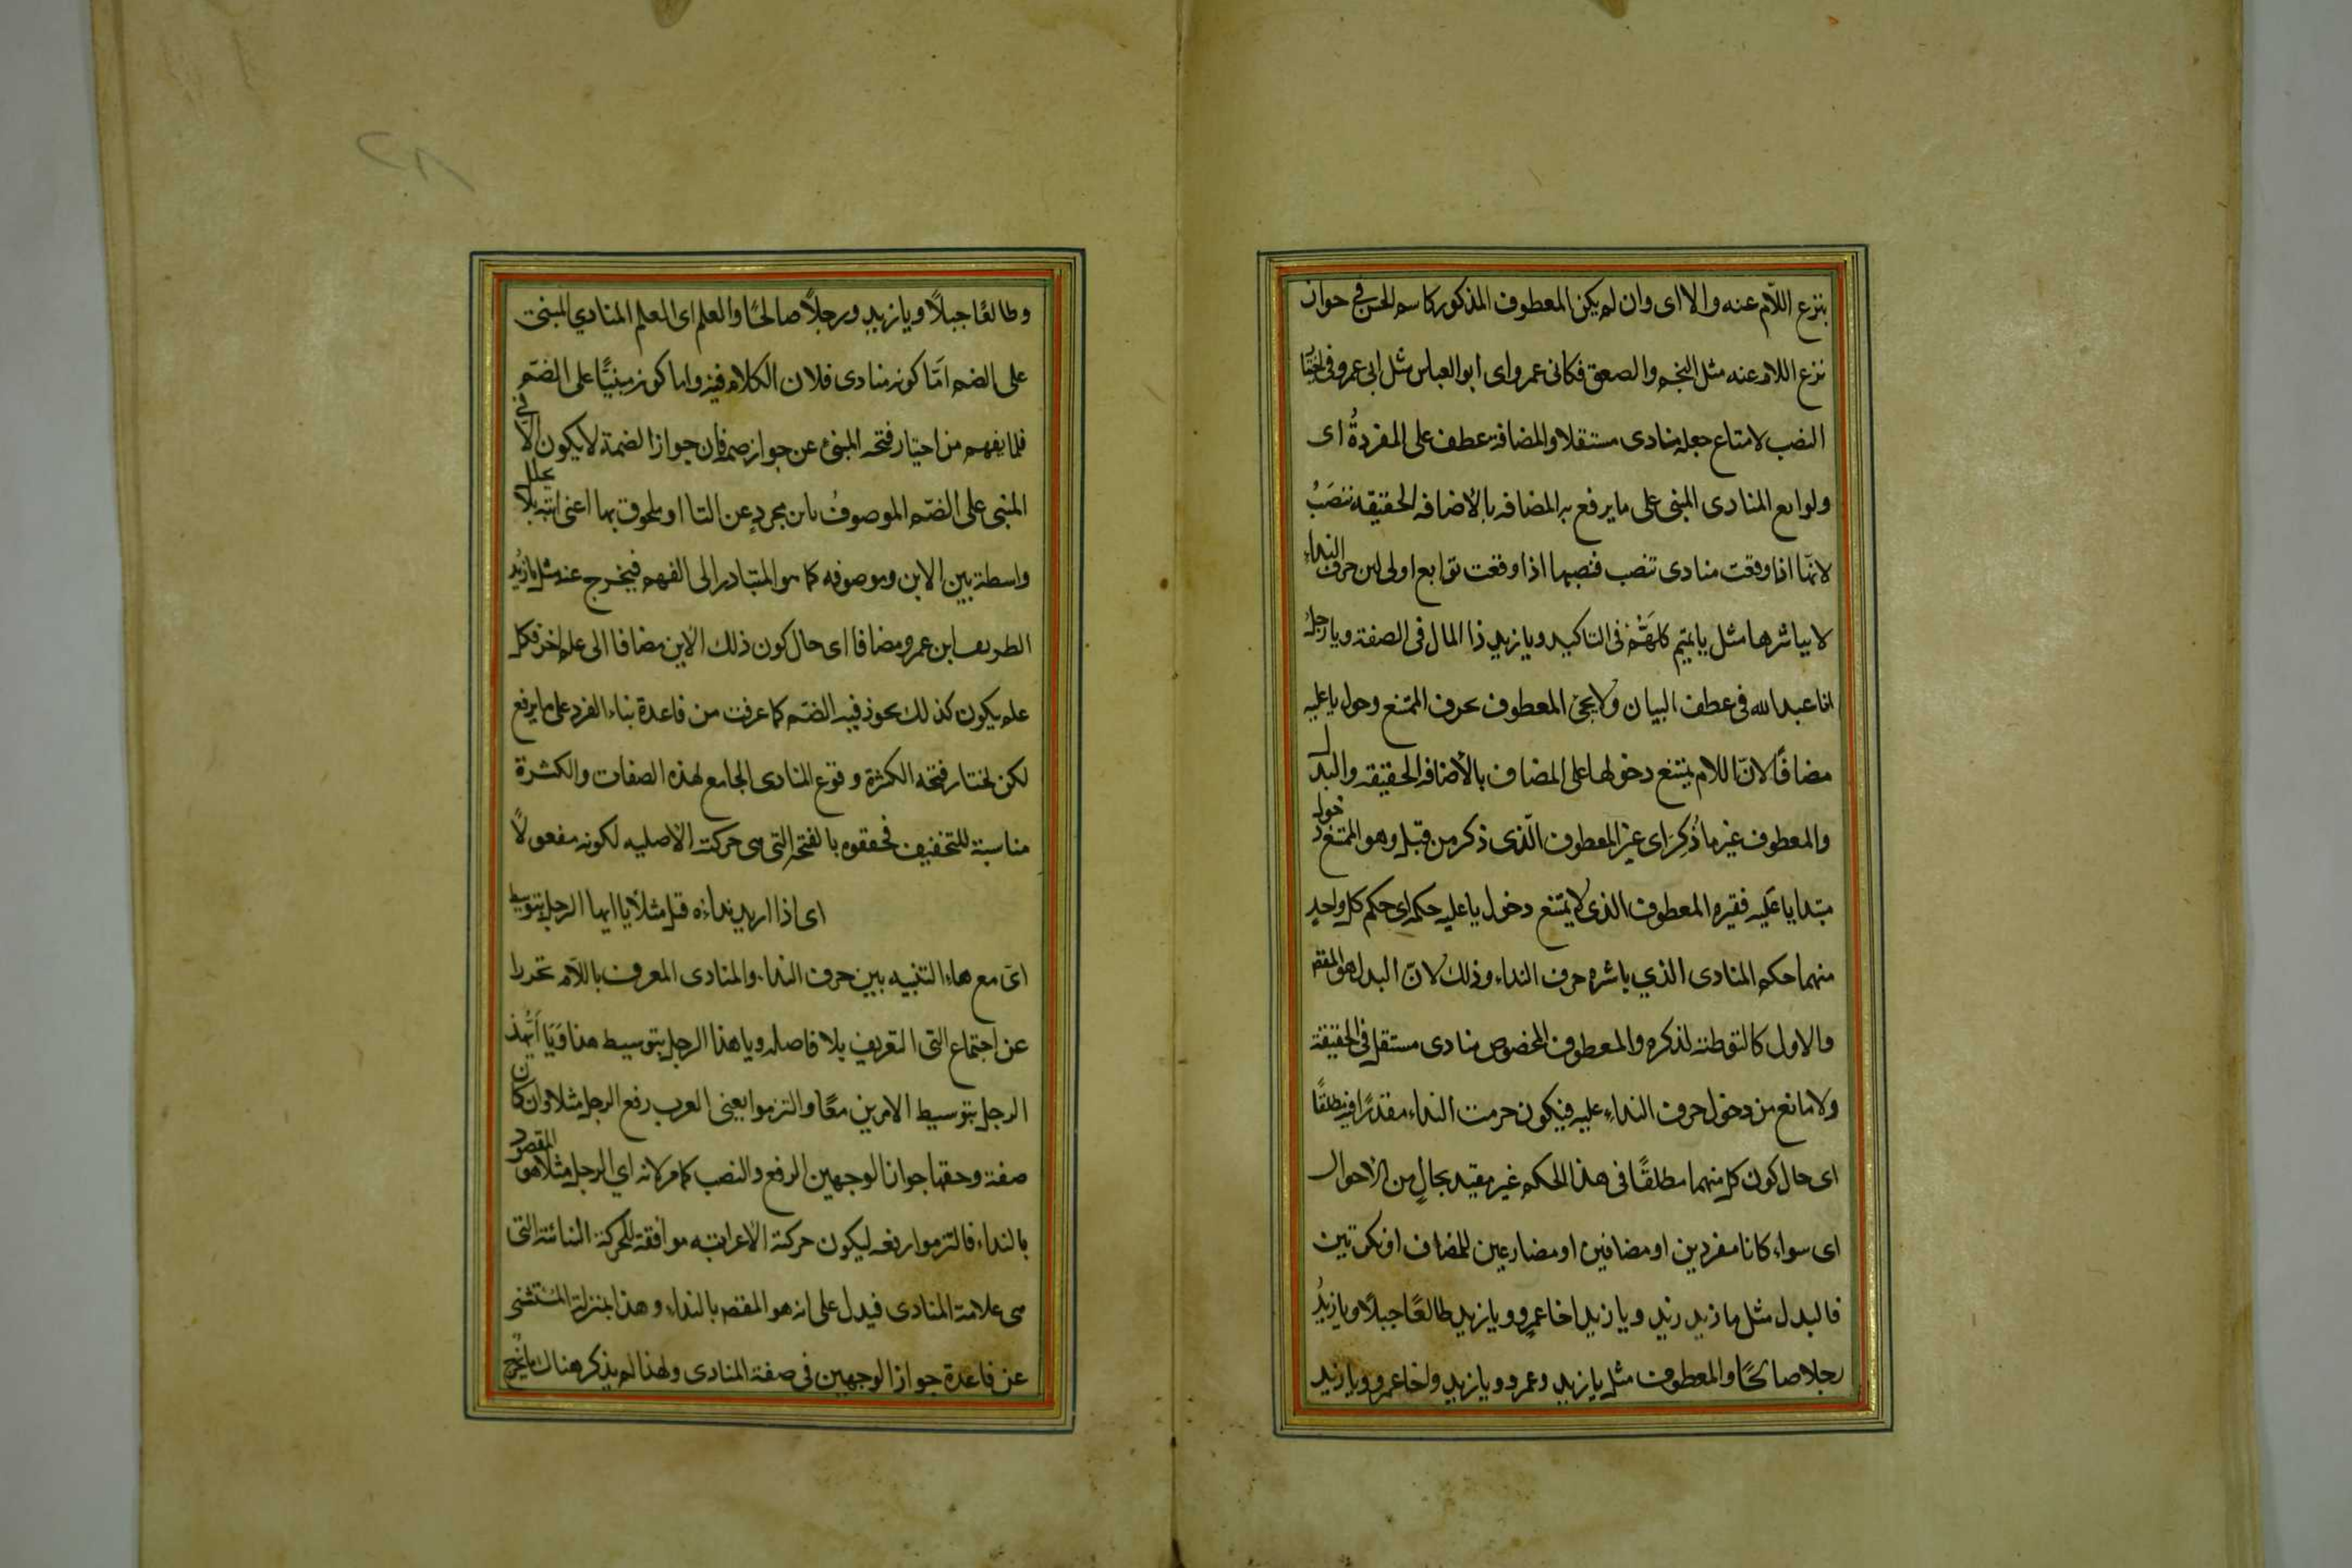 بنزع اللّام عنه والا اى وان لم يكن المعطوف المذكور كاسم الحسن فى جواز
نزع اللام عنه مثل النجم والصعق فكابى عمرو اى ابو العباس مثل ابى عمرو فى اختيار
النصب لامتناع جعله منادى مستقلا والمضافة عطف على المفردةُ اى
وتوابع المنادى المبنى على ما يرفع به المضافه بالاضافه الحقيقه تنصَبُ
لانّها اذا وقعت منادى تنصب فنصبها اذا وقعت توابع اولى لان حرف النداء
لا يباشرها مثل يا تميم كلهَّم فى التاكيد ويا زيد ذا المال فى الصفة ويا رجلُ
ابا عبد الله فى عطف البيان ولا يجئ المعطوف بحرف الممتنع دخول يا عليه
مضافًا لانّ اللام يمتنع دخولها على المضاف بالأضافه الحقيقه والبدل
والمعطوف غير ما ذُكِرَ اى غير المعطوف الّذى ذكر من قبل وهو الممتنع دخول
يا عليه فغيره المعطوف الذى لا يمتنع دخول يا عليه حكمه اى حكم كل واحدٍ
منهما حكم المنادى الذي باشره حرف النداء وذلك لانّ البدل هو المقصـ
والاول كالتوطئة لذكره والمعطوف المخصوص منادى مستقل فى الحقيقة
ولا مانع من دخول حرف النداءِ عليه فيكون حرف النداء مقدّرًا فيه مطلقًا
اى حال كون كل منهما مطلقًا فى هذا الحكم غير مقيد بحالٍ من الاحوال
اى سواء كانا مفردين او مضافين او مضارعين للمضاف او نكرتين
فالبدل مثل يا زيد زيد ويا زيد اخا عمرٍو ويا زيد طالعًا جبلًا ويا زيدُ
رجلا صالحًا والمعطوف مثل يا زيد وعمرو ويا زيد واخا عمرو ويا زيد
وطالعًا جبلًا ويا زيد ورجلًا صالحًا والعلم اى العلم المنادي المبنى
على الضم امّا كونه منادى فلان الكلام فيه واما كونه مبنيًّا على الضمّ
فلما يفهم من اختيار فتحه المبنئ عن جواز ضمه فان جواز الضمة لا يكون الّا فى
المبنى على الضّم الموصوفُ بابن مجردٍ عن التا او ملحوق بها اعنى ابنه بلا تخلل
واسطة بين الابن وموصوفه كما هو المتبادر الى الفهم فيخرج عنه مثل يا زيدُ
الظريف ابن عمرو مضافا اى حال كون ذلك الابن مضافا الى علم اخر فكل
علم يكون كذلك يجوز فيه الضمّ كما عرفت من قاعدة بناء المفرد على ما يرفع
لكن يختار فتحه لكثرة وقوع المنادى الجامع لهذه الصفات والكثرة
مناسبة للتخفيف فخففوه بالفتحه التى هى حركته الأصليه لكونه مفعولًا
اى اذا اريد نداؤه قيل مثلًا يا ايها الرجل بتوسيط
اىّ مع هاء التنبيه بين حرف النداء والمنادى المعرف باللّام تحررا
عن اجتماع التى التعريف بلا فاصله ويا هذا الرجل بتوسيط هذا وَيَا أَيُّهذ
الرجل بتوسيط الامرين معًا والتزموا يعنى العرب رفع الرجل مثلا وان كان
صفة وحقها جواز الوجهين الرفع والنصب كما مر لانه اي الرجل مثلًا هو المقصود
بالنداء فالتزموا رفعه ليكون حركته الأعرابيّه موافقة للحركة البنائية التى
هى علامة المنادى فيدل على انه هو المقصـ بالنداء وهذا بمنزلة المستثنى
عن قاعدة جواز الوجهين فى صفة المنادى ولهذا لم يذكر هناك ما يخرج